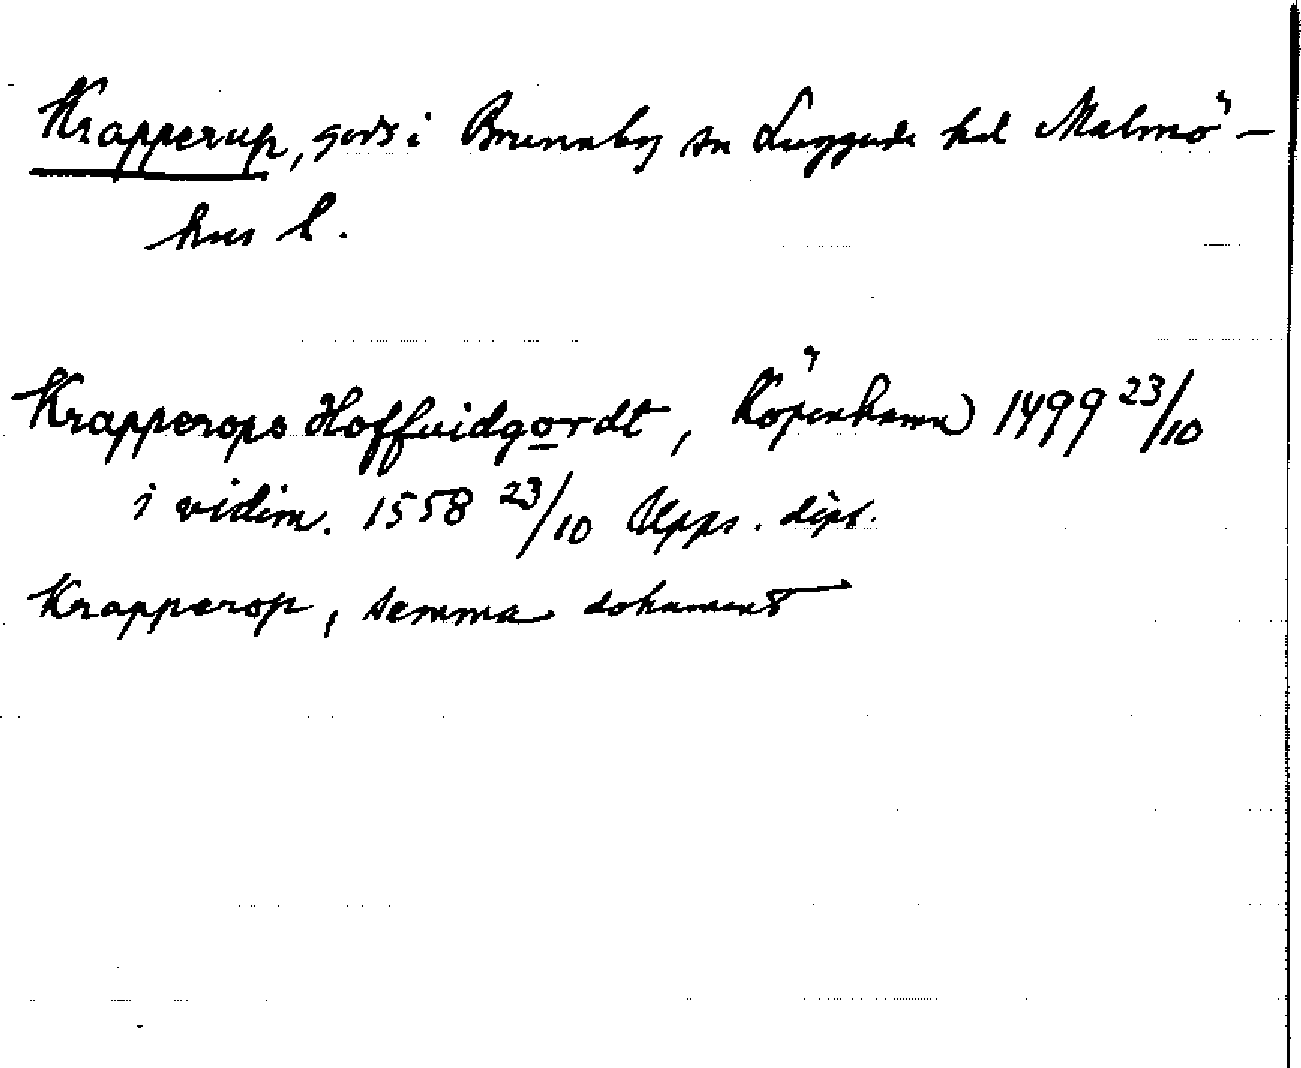 Krapperup, gods i Brunnby sn Luggude hd Malmö-
hus l.
Krapperops Hoffuidgordt, Köpenhamn 1499 23/10
i vidim. 1558 23/10 Upps. dipl.
Krapperop, samma dokument